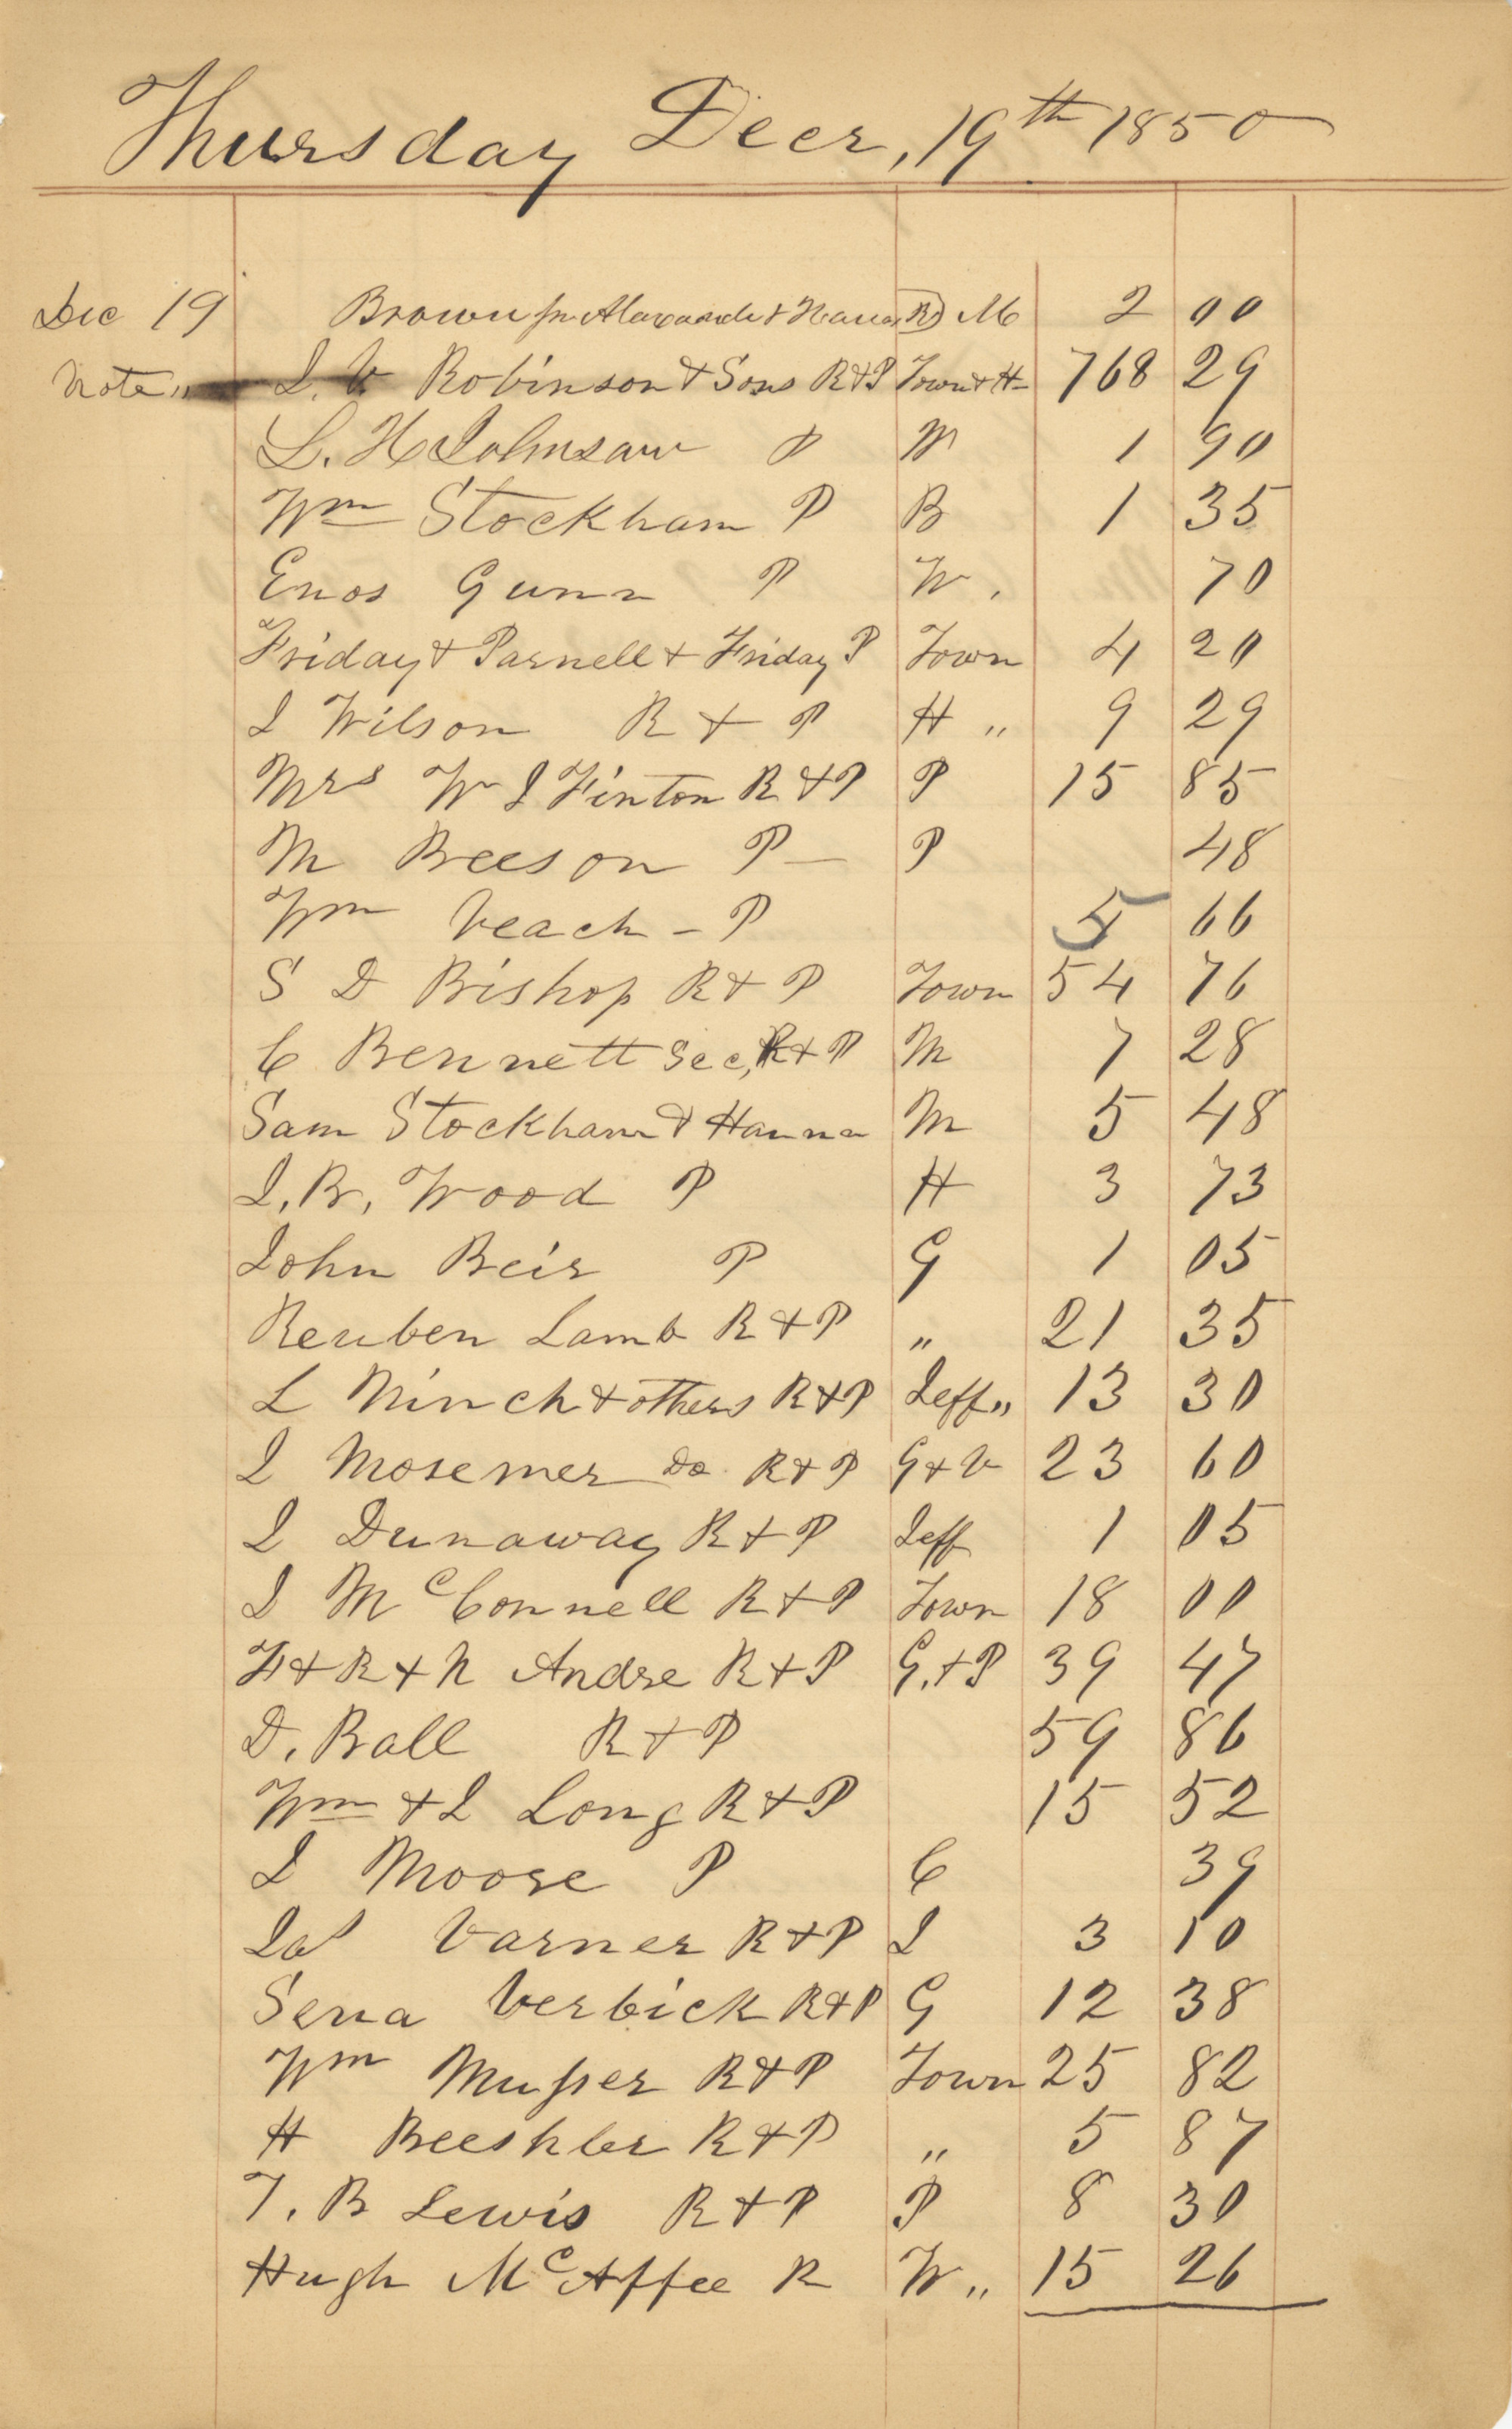 Thursday Decr, 19th 1850
Dec 19 Brown for Alexander & Hanna R M 2 00
Note " J. V. Robinson & Sons R & P Town & H 768 29
L. H Johnson P W 1 90
Wm Stockham P B 1 35
Enos Gunn P W. 70
Friday & Parnell & Friday P Town 4 20
J Wilson R & P H " 9 29
Mrs W J Finton R & P P 15 85
M Beeson P — P 48
Wm Veach - P 5 66
S D Bishop R & P Town 54 76
C Bennett Sec, R & P M 7 28
Sam Stockham & Hanna M 5 48
J. B. Wood P H 3 73
John Beir P G 1 05
Reuben Lamb R & P " 21 35
L Minch & others R & P Jeff " 13 30
J Mosemer do R & P G & V 23 60
J Dunaway R & P Jeff 1 05
J McConnell R & P Town 18 00
F & R & N Andre R & P G. & P 39 47
D. Ball R & P 59 86
Wm & J Long R & P 15 52
J Moore P C 39
Jas Varner R & P J 3 10
Sena Verbick R & P G 12 38
Wm Musser R & P Town 25 82
H Beeshler R & P " 5 87
T. B Lewis R & P P 8 30
Hugh McAffee R W " 15 26